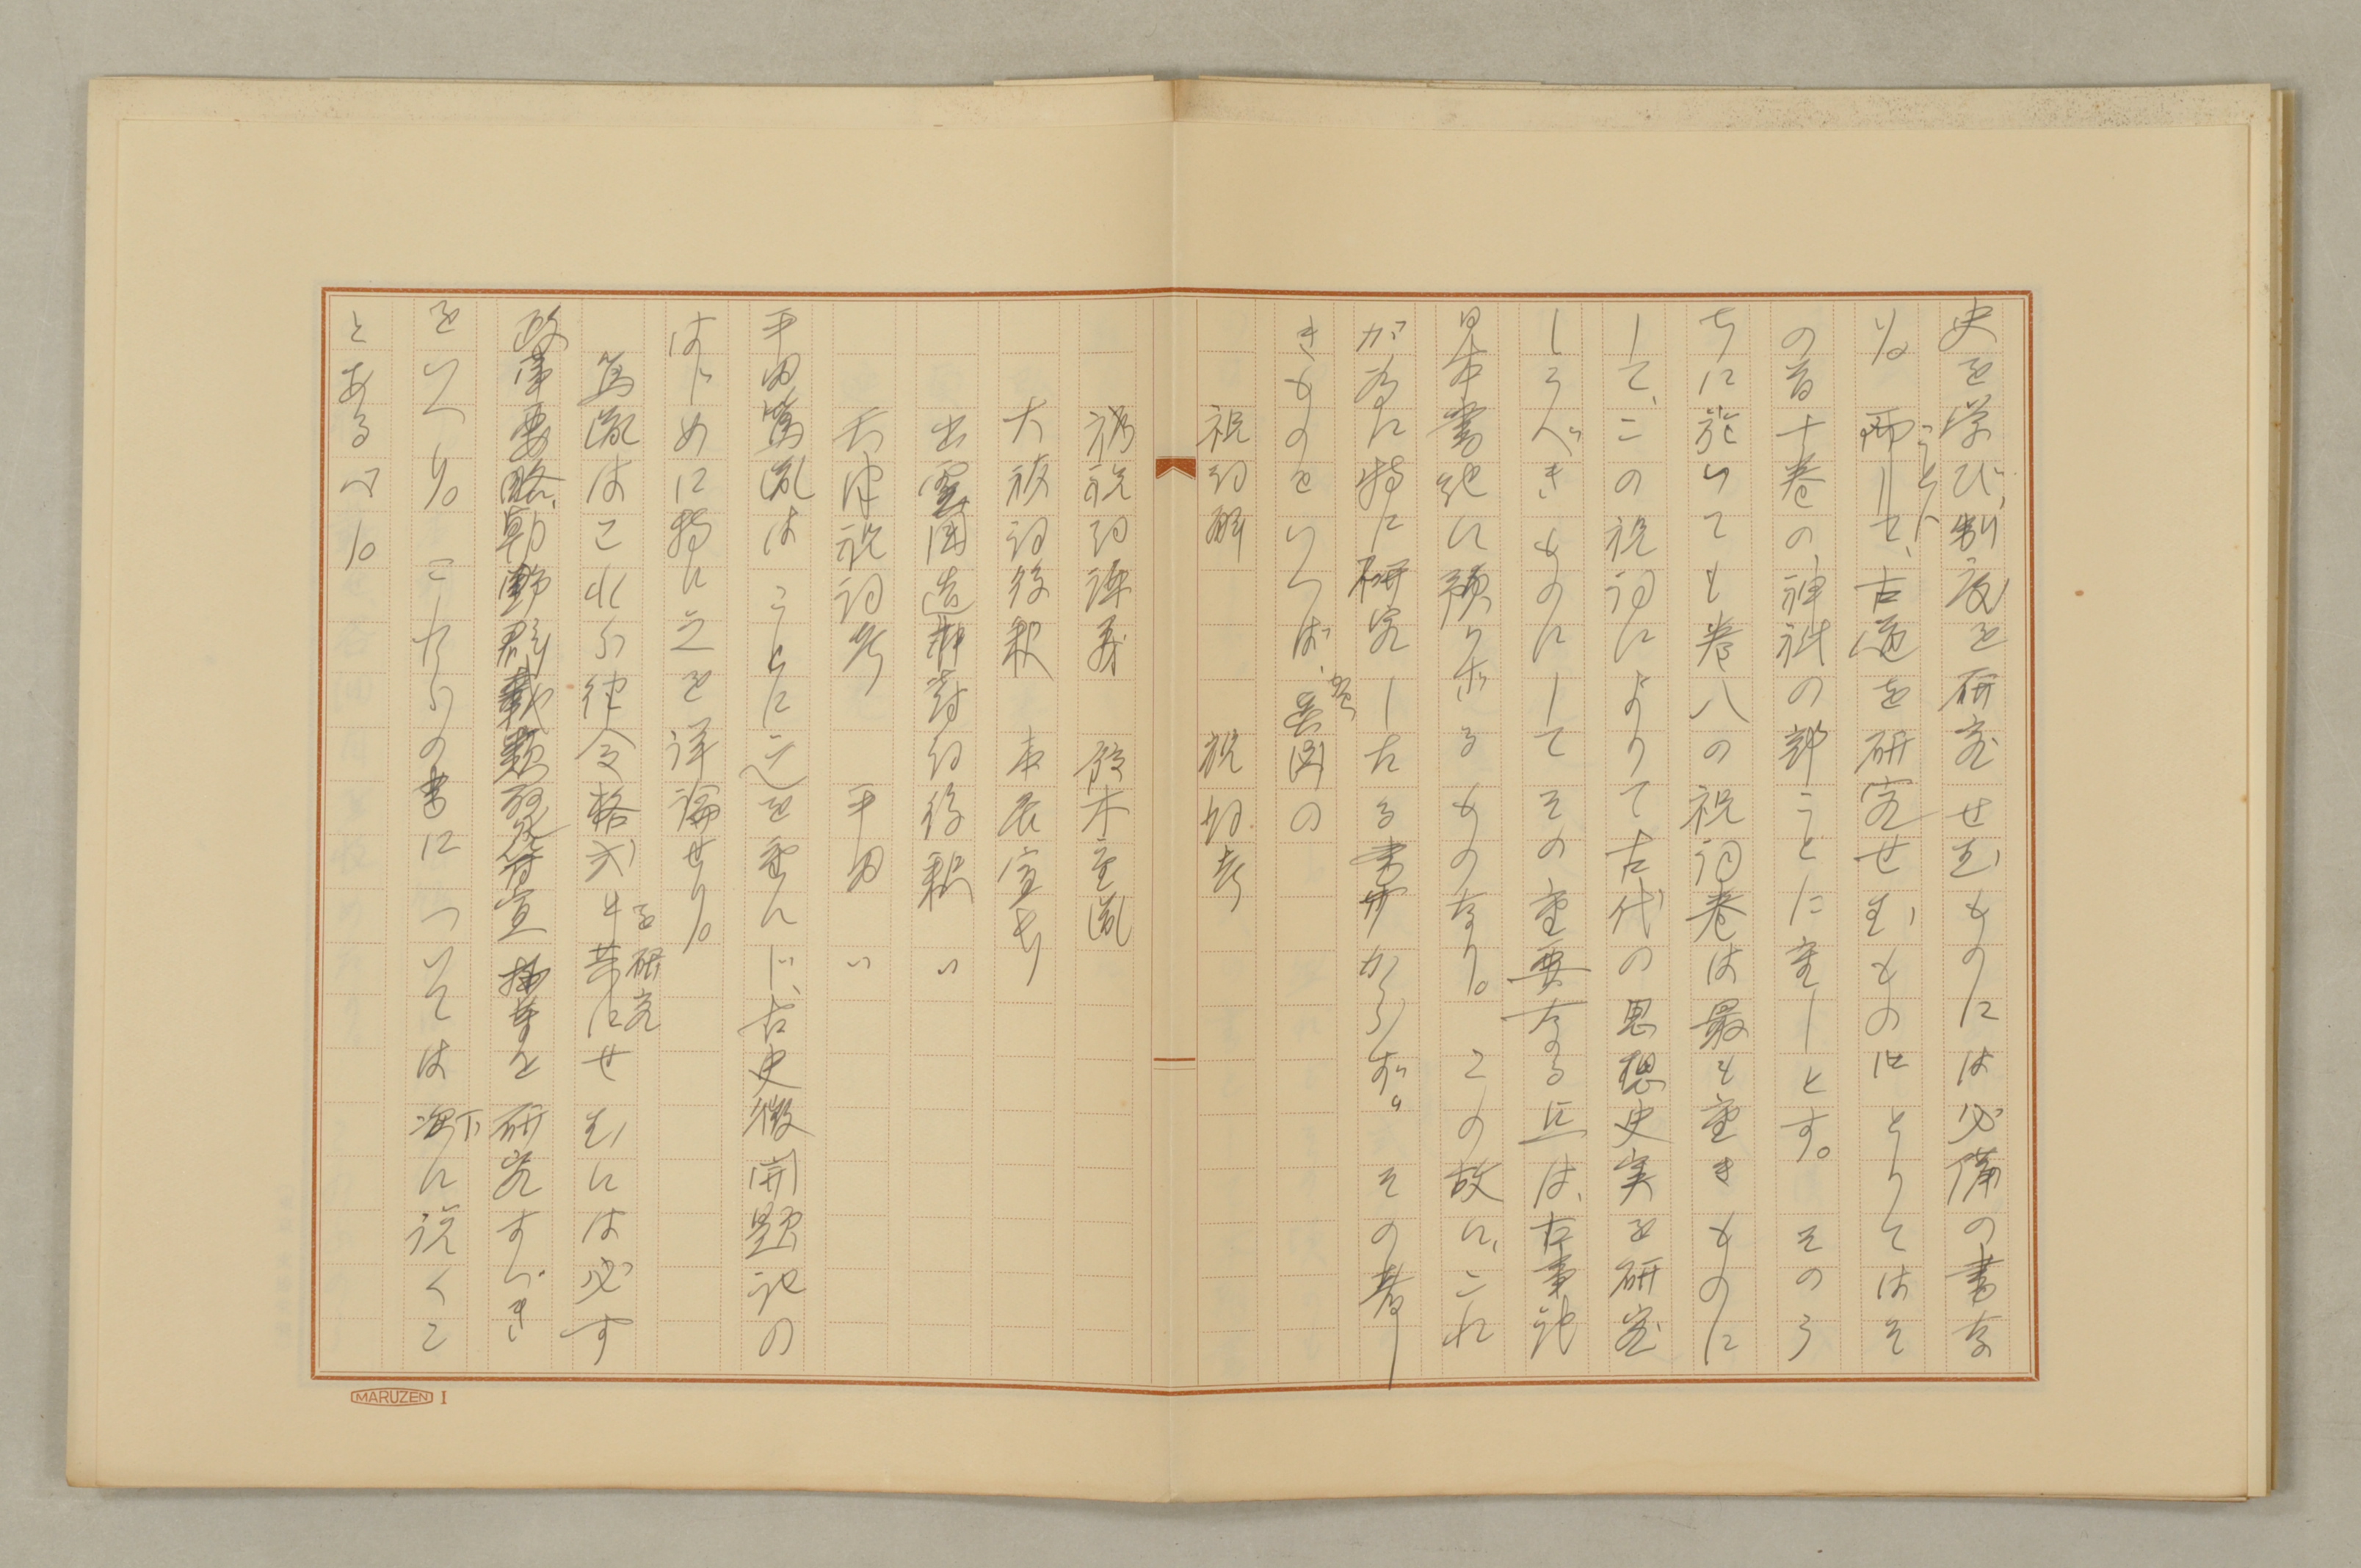 史を学び、制度を研究せむものには必備の書な
り。而して、古道を研究せむものにとりてはそ
ことに
の首十巻の、神祇の部ことに重しとす。そのう
ちに就いても巻八の祝詞巻は最も重きものに
して、この祝詞によりて古代の思想史実を研究
しうべきものにしてその重要なる点は、古事記
日本書紀に預りホるもの有り。この故に、これ
が為に特に研究したる書少からず。その著し
きものをいへば、
祝詞解 祝詞考
祝詞講義 鈴木重胤
大祓詞後釈 本居宣長
出雲国造神寿詞後釈 〃
天津祝詞考 平田
平田篤胤はことに之を重んじ、古史徴開題記の
はじめに特に之を詳論せり。
篤胤はこれら律令格式等にせむには必す
を研究
政事要略、朝野群載、類聚符宣抄等を研究すべき
をいへり。これらの書については次下に説くこ
とあるべし。
MARUZEN I